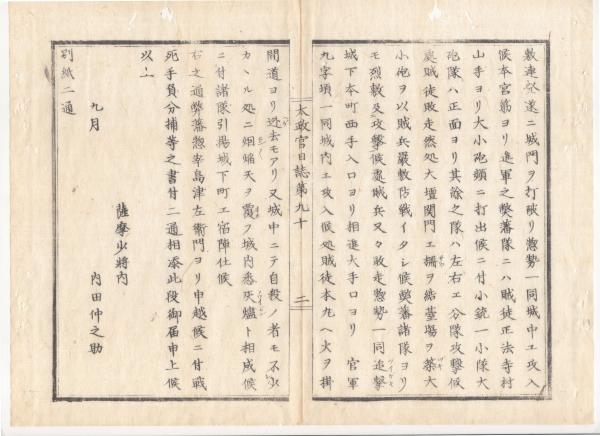 敷走終ニ城門ヲ打破リ惣勢一同城中エ攻入
候本宮筋ヨリ進軍之弊藩隊ニハ賊徒正法寺村
山手ヨリ大小砲頻ニ打出候ニ付小銃一小隊大
砲隊ハ正面ヨリ其餘之隊ハ左右エ分隊攻撃候
處賊徒敗走然処大壇関門エ柵ヲ結臺場ヲ築大
小砲ヲ以賊兵嚴敷防戦イタシ候弊藩諸隊ヨリ
モ烈敷及攻撃候處賊兵又々敗走惣勢一同追撃
城下本町西手入口ヨリ相進大手口ヨリ 官軍
九字頃一同城内エ攻入候処賊徒本丸ヘ火ヲ掛
太政官日誌第九十
二
間道ヨリ迯去モアリ又城中ニテ自殺ノ者モ不少
カヽル処ニ烟焔天ヲ覆ヲ城内悉灰燼ト相成候
ニ付諸隊引揚城下町エ宿陣仕候
右之通弊藩惣宰島津左衛門ヨリ申越候ニ付戦
死手負分捕等之書付二通相添此段御届申上候
以上
薩摩少將内
九月 内田仲之助
別紙二通